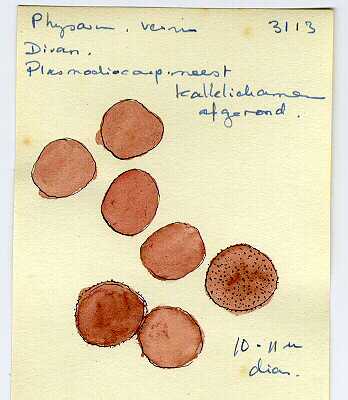 Physarum . vernum 3113
Divan.
Plasmodiocarp. meest
Kalklichamen
afgerond.
10-11 u
diam.